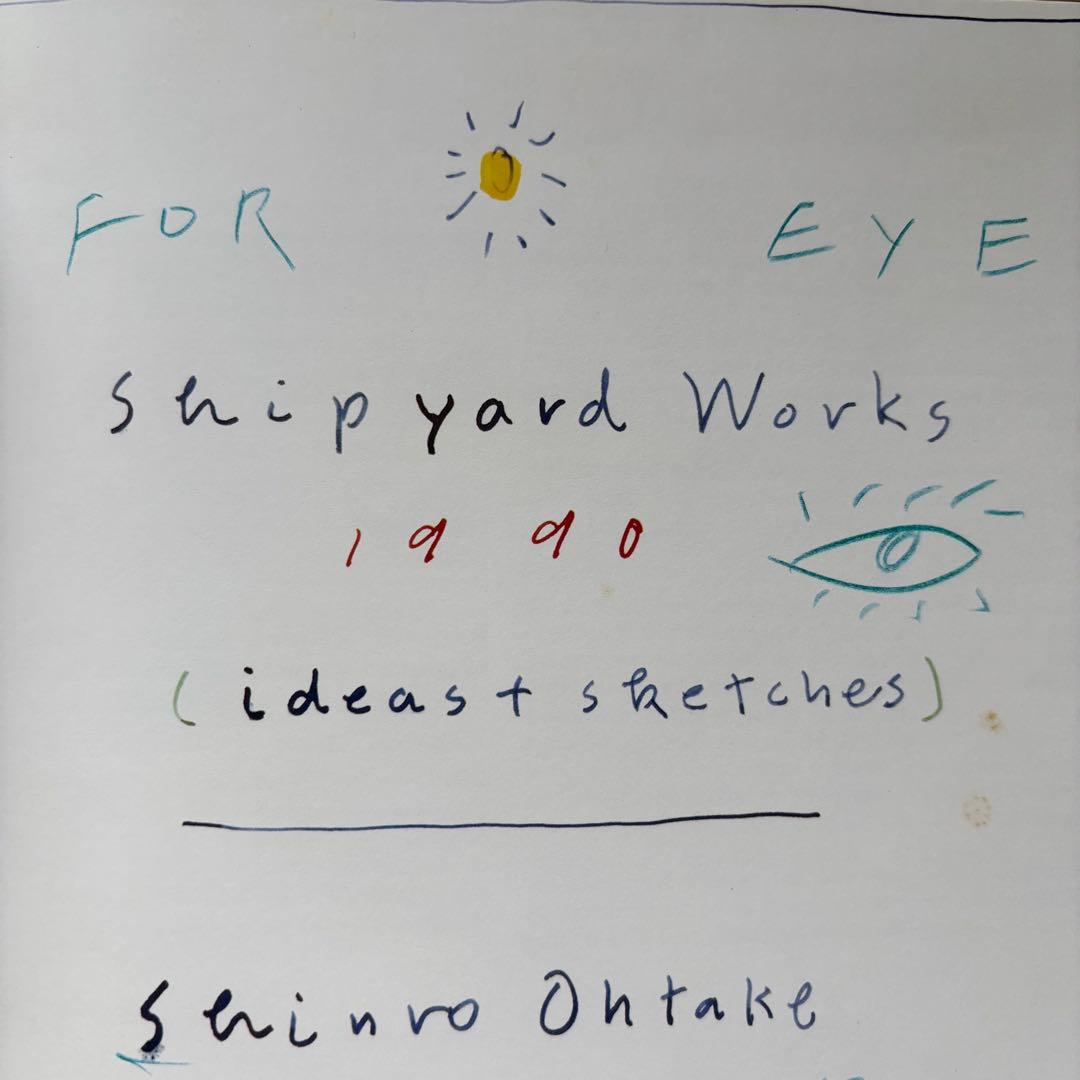 FOR EYE
Shipyard Works
1990
(ideas + sketches)
Shinro Ohtake